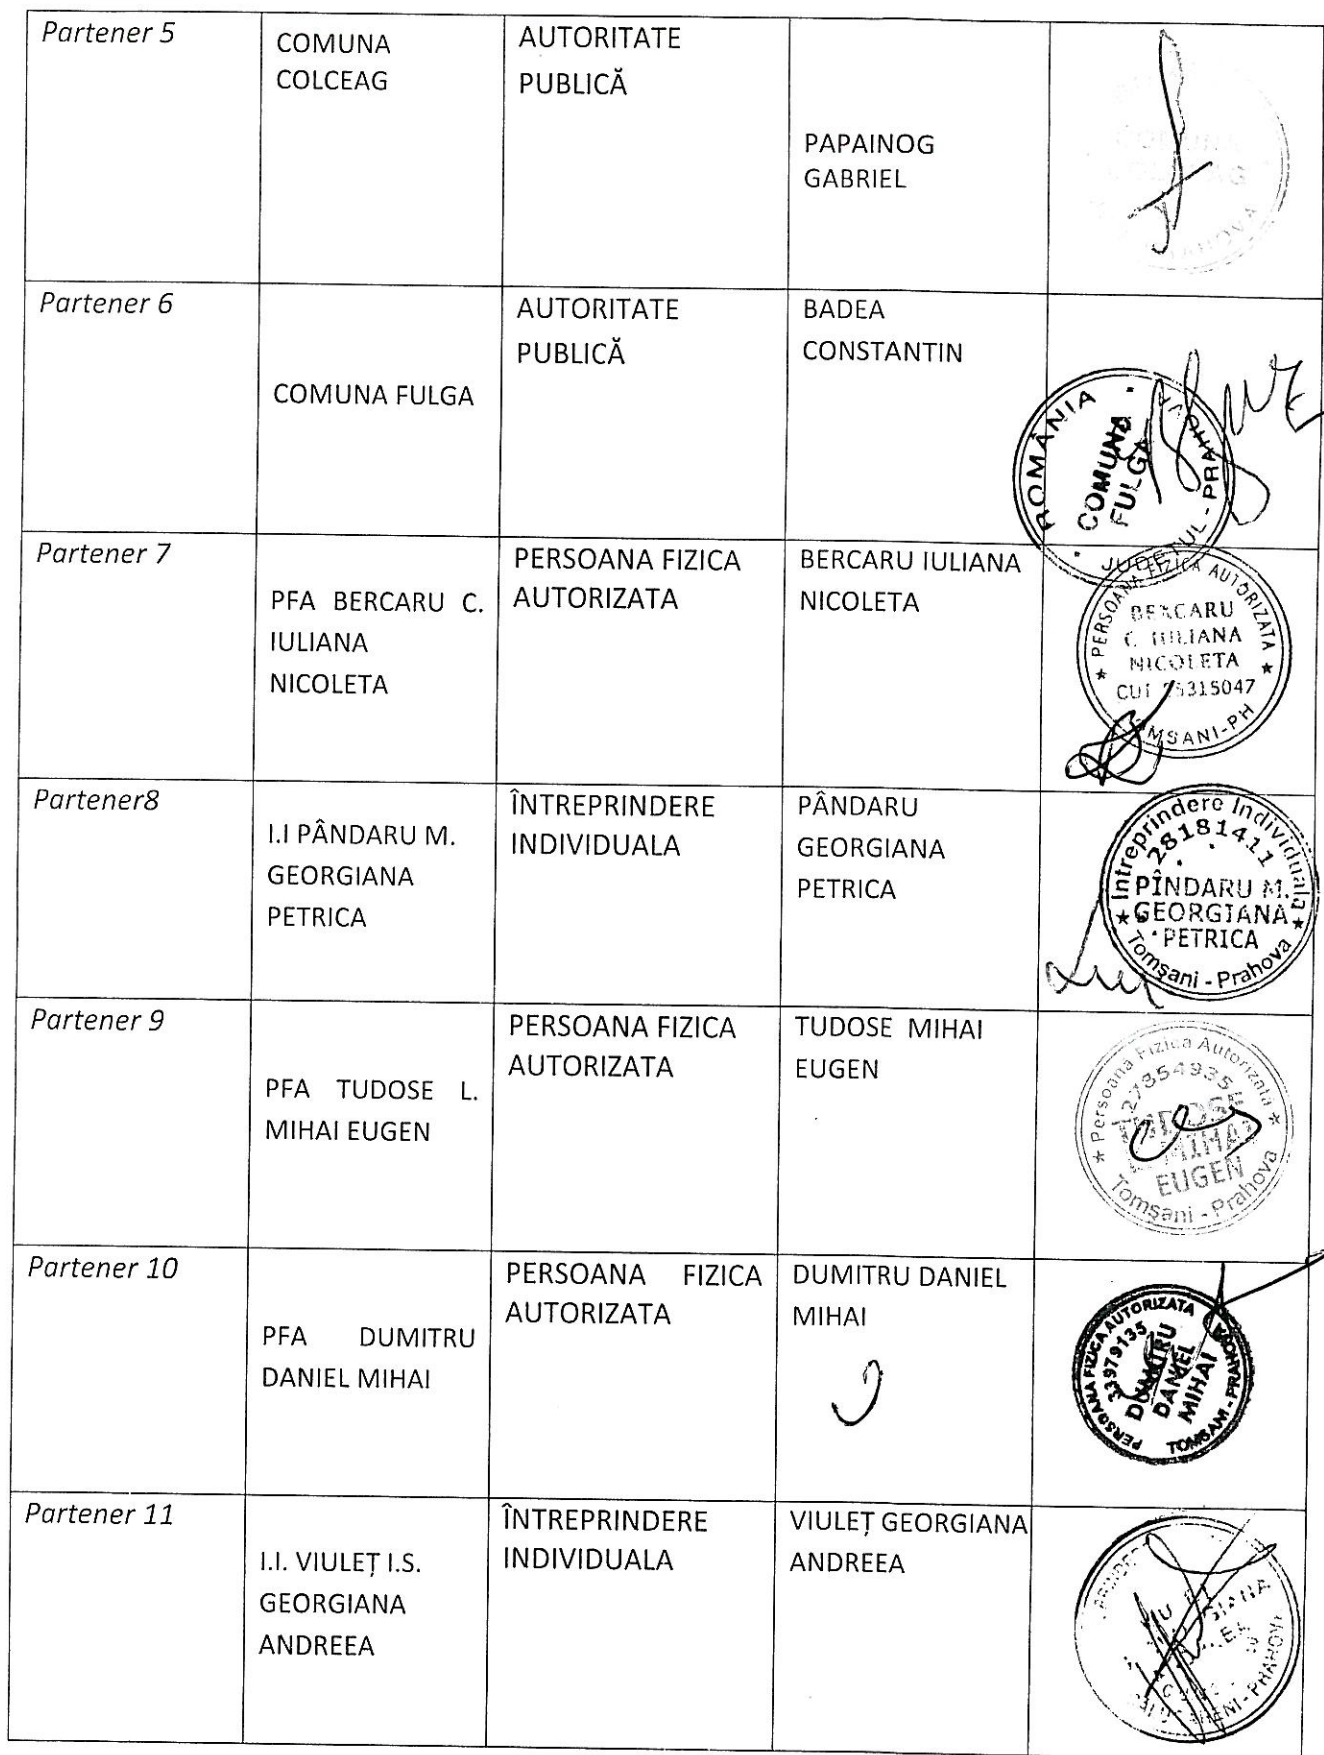 Partener 5
COMUNA
COLCEAG
AUTORITATE
PUBLICĂ
PAPAINOG
GABRIEL
Partener 6
COMUNA FULGA
AUTORITATE
PUBLICĂ
BADEA
CONSTANTIN
ROMÂNIA
COMUNA
FULGA
JUDEȚUL - PRAHOVA
Partener 7
PFA BERCARU C.
IULIANA
NICOLETA
PERSOANA FIZICA
AUTORIZATA
BERCARU IULIANA
NICOLETA
PERSOANA FIZICA AUTORIZATA
BERCARU
C. IULIANA
NICOLETA
Partener8
I.I PÂNDARU M.
GEORGIANA
PETRICA
ÎNTREPRINDERE
INDIVIDUALA
PÂNDARU
GEORGIANA
PETRICA
Intreprindere Individuala
28181411
PÎNDARU M.
GEORGIANA
PETRICA
Tomşani - Prahova
Partener 9
PFA TUDOSE L.
MIHAI EUGEN
PERSOANA FIZICA
AUTORIZATA
TUDOSE MIHAI
EUGEN
Persoana Fizica Autorizata
27854935
TUDOSE
MIHAI
EUGEN
Tomşani - Prahova
Partener 10
PFA DUMITRU
DANIEL MIHAI
PERSOANA FIZICA
AUTORIZATA
DUMITRU DANIEL
MIHAI
PERSOANA FIZICA AUTORIZATA
33979135
DUMITRU
DANIEL
MIHAI
TOMSANI - PRAHOVA
Partener 11
I.I. VIULEȚ I.S.
GEORGIANA
ANDREEA
ÎNTREPRINDERE
INDIVIDUALA
VIULEȚ GEORGIANA
ANDREEA